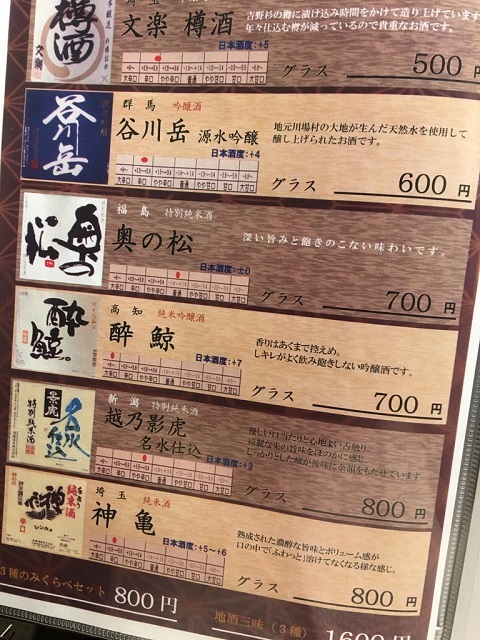 樽酒
文楽
埼玉
文楽 樽酒
吉野杉の樽に漬け込み時間をかけて造り上げています
年々仕込む樽が減っているので貴重なお酒です。
日本酒度:+5
大辛口 辛口 やや辛口 普通 やや甘口 甘口 大甘口
グラス 500 円
谷川岳
群馬 吟醸酒
谷川岳 源水吟醸
地元川場村の大地が生んだ天然水を使用して
醸し上げられたお酒です。
日本酒度:+4
大辛口 辛口 やや辛口 普通 やや甘口 甘口 大甘口
グラス 600 円
奥の松
福島 特別純米酒
奥の松
深い旨みと飽きのこない味わいです。
日本酒度:±0
大辛口 辛口 やや辛口 普通 やや甘口 甘口 大甘口
グラス 700 円
酔鯨
高知 純米吟醸酒
酔鯨
香りはあくまで控えめ。
しキレがよく飲み飽きしない吟醸酒です。
日本酒度:+7
大辛口 辛口 やや辛口 普通 やや甘口 甘口 大甘口
グラス 700 円
景虎
名水仕込
特別純米酒
新潟 特別純米酒
越乃影虎
名水仕込
優しい口当たりと心地よい舌触り
綺麗な米の旨味をほのかに感じ
しっかりとした酸が後味に余韻をもたせています
日本酒度:+3
大辛口 辛口 やや辛口 普通 やや甘口 甘口 大甘口
グラス 800 円
純米酒
神亀
辛口
埼玉 純米酒
神亀
熟成された濃醇な旨味とボリューム感が
口の中で「ふわっと」溶けてなくなる様な感じ。
日本酒度:+5~+6
大辛口 辛口 やや辛口 普通 やや甘口 甘口 大甘口
グラス 800 円
3種のみくらべセット 800円
地酒三味(3種) 1600円